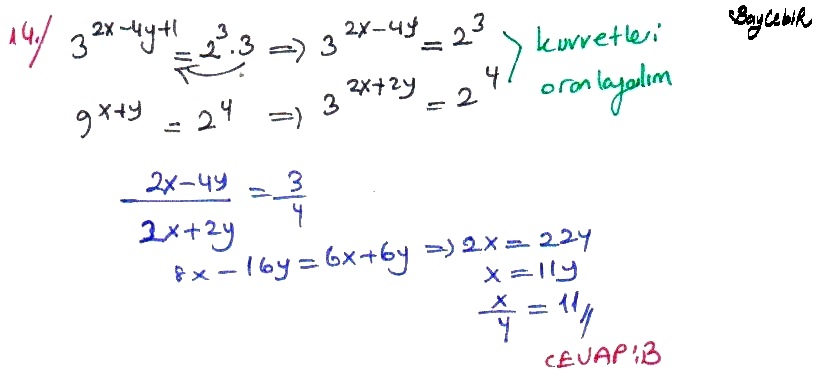 BayCebiR
14./ 3^{2x-4y+1} = 2^3 . 3 => 3^{2x-4y} = 2^3
9^{x+y} = 2^4 => 3^{2x+2y} = 2^4
kuvvetleri
oranlayalım
\frac{2x-4y}{2x+2y} = \frac{3}{4}
8x - 16y = 6x + 6y => 2x = 22y
x = 11y
\frac{x}{y} = 11 //
CEVAP: B